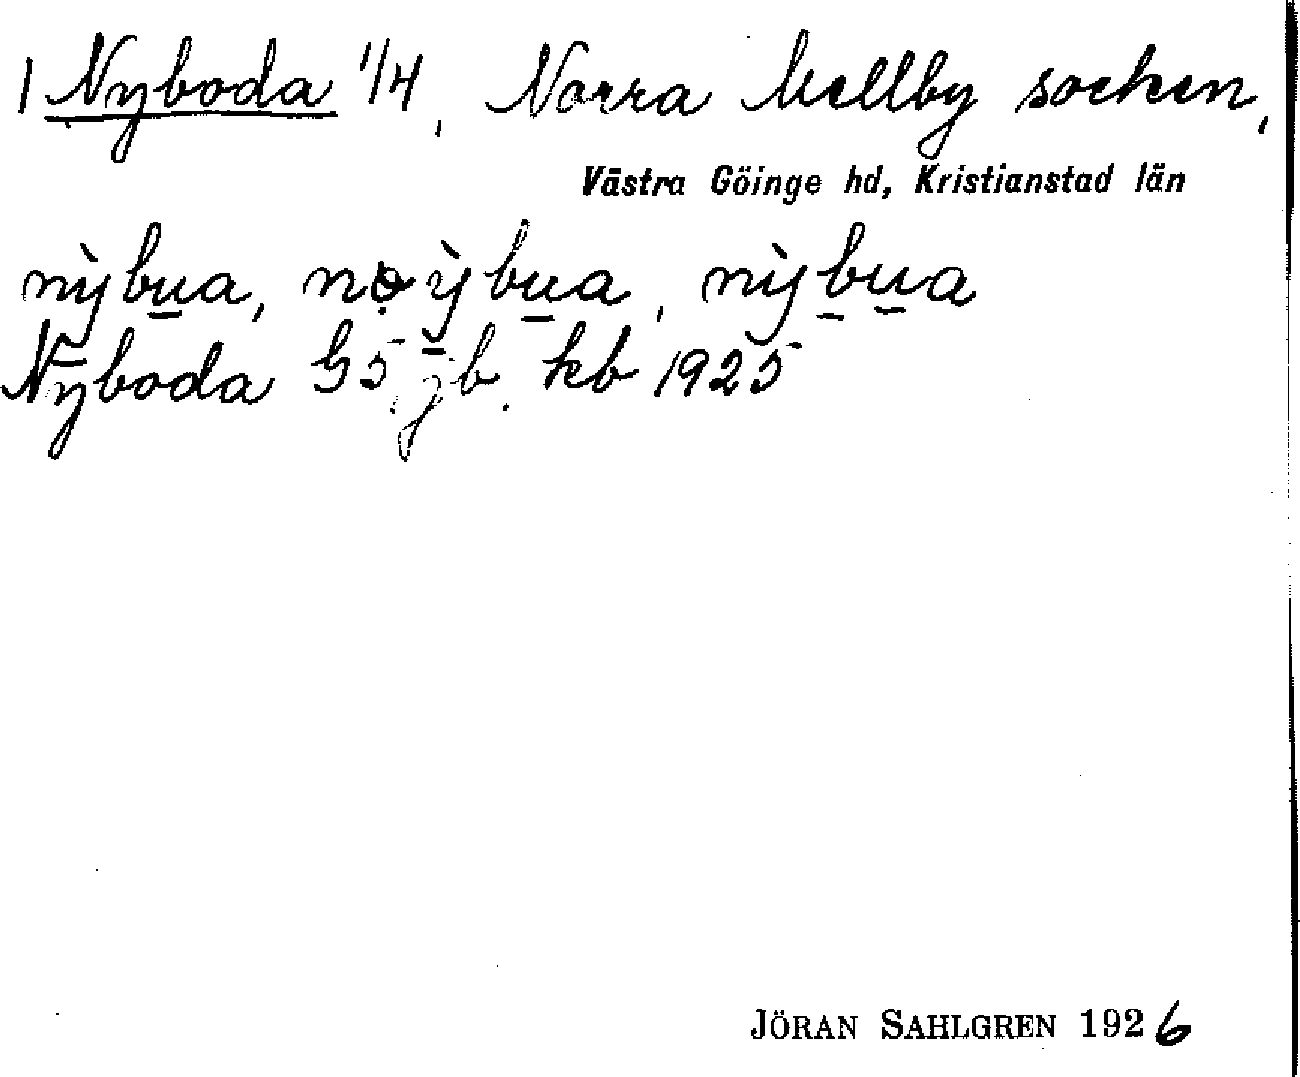 1 Nyboda 1/4, Norra Mellby socken,
Västra Göinge hd, Kristianstad län
nỳbu̲a, nọỳbu̲a, nỳb̲u̲a
Nyboda G5 jb. kb 1925
JÖRAN SAHLGREN 1926